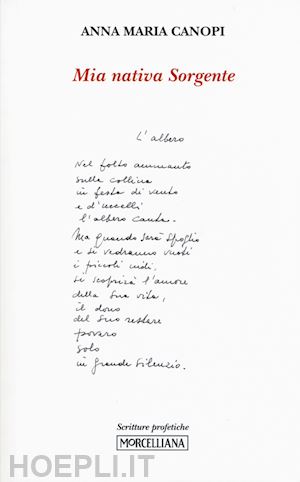 ANNA MARIA CANOPI
Mia nativa Sorgente
L'albero
Nel folto ammanto
sulla collina
in festa di vento
e d'uccelli
l'albero canta.
Ma quando sarà spoglio
e si vedranno vuoti
i piccoli nidi,
si scoprirà l'amore
della sua vita,
il dono
del suo restare
povero
solo
in grande silenzio.
Scritture profetiche
MORCELLIANA
HOEPLI.IT